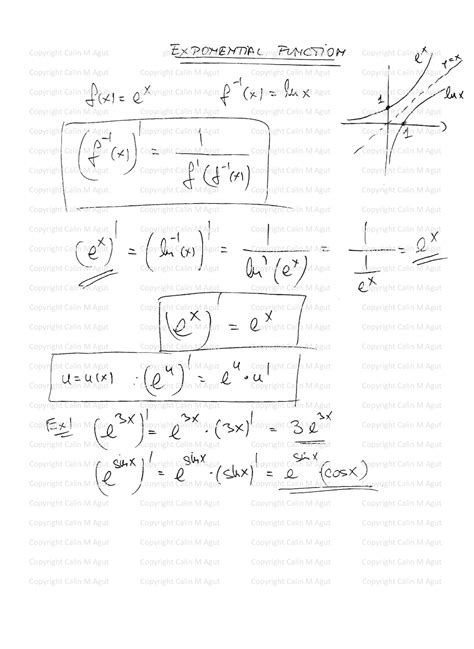 EXPONENTIAL FUNCTION
f(x) = e^x    f^-1(x) = ln x
e^x
y=x
ln x
1
1
(f^-1(x))' = 1 / f'(f^-1(x))
(e^x)' = (ln^-1(x))' = 1 / ln'(e^x) = 1 / (1/e^x) = e^x
(e^x)' = e^x
u = u(x) · (e^u)' = e^u · u'
Ex! (e^3x)' = e^3x · (3x)' = 3e^3x
(e^sinx)' = e^sinx · (sinx)' = e^sinx (cosx)
Copyright Calin M Agut